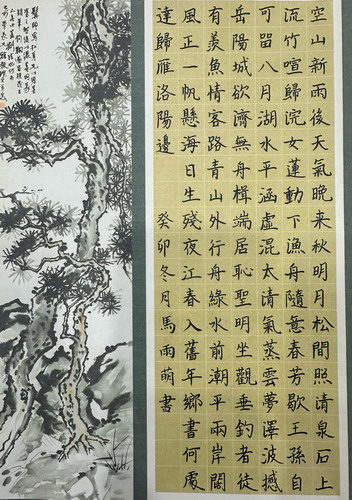 空山新雨後天氣晚来秋明月松間照清泉石上
流竹喧歸浣女蓮動下漁舟隨意春芳歇王孫自
可留八月湖水平涵虛混太清氣蒸雲夢澤波撼
岳陽城欲濟無舟楫端居恥聖明坐觀垂釣者徒
有羨魚情客路青山外行舟綠水前潮平兩岸闊
風正一帆懸海日生殘夜江春入舊年鄉書何處
達歸雁洛陽邊 癸卯冬月馬雨萌書